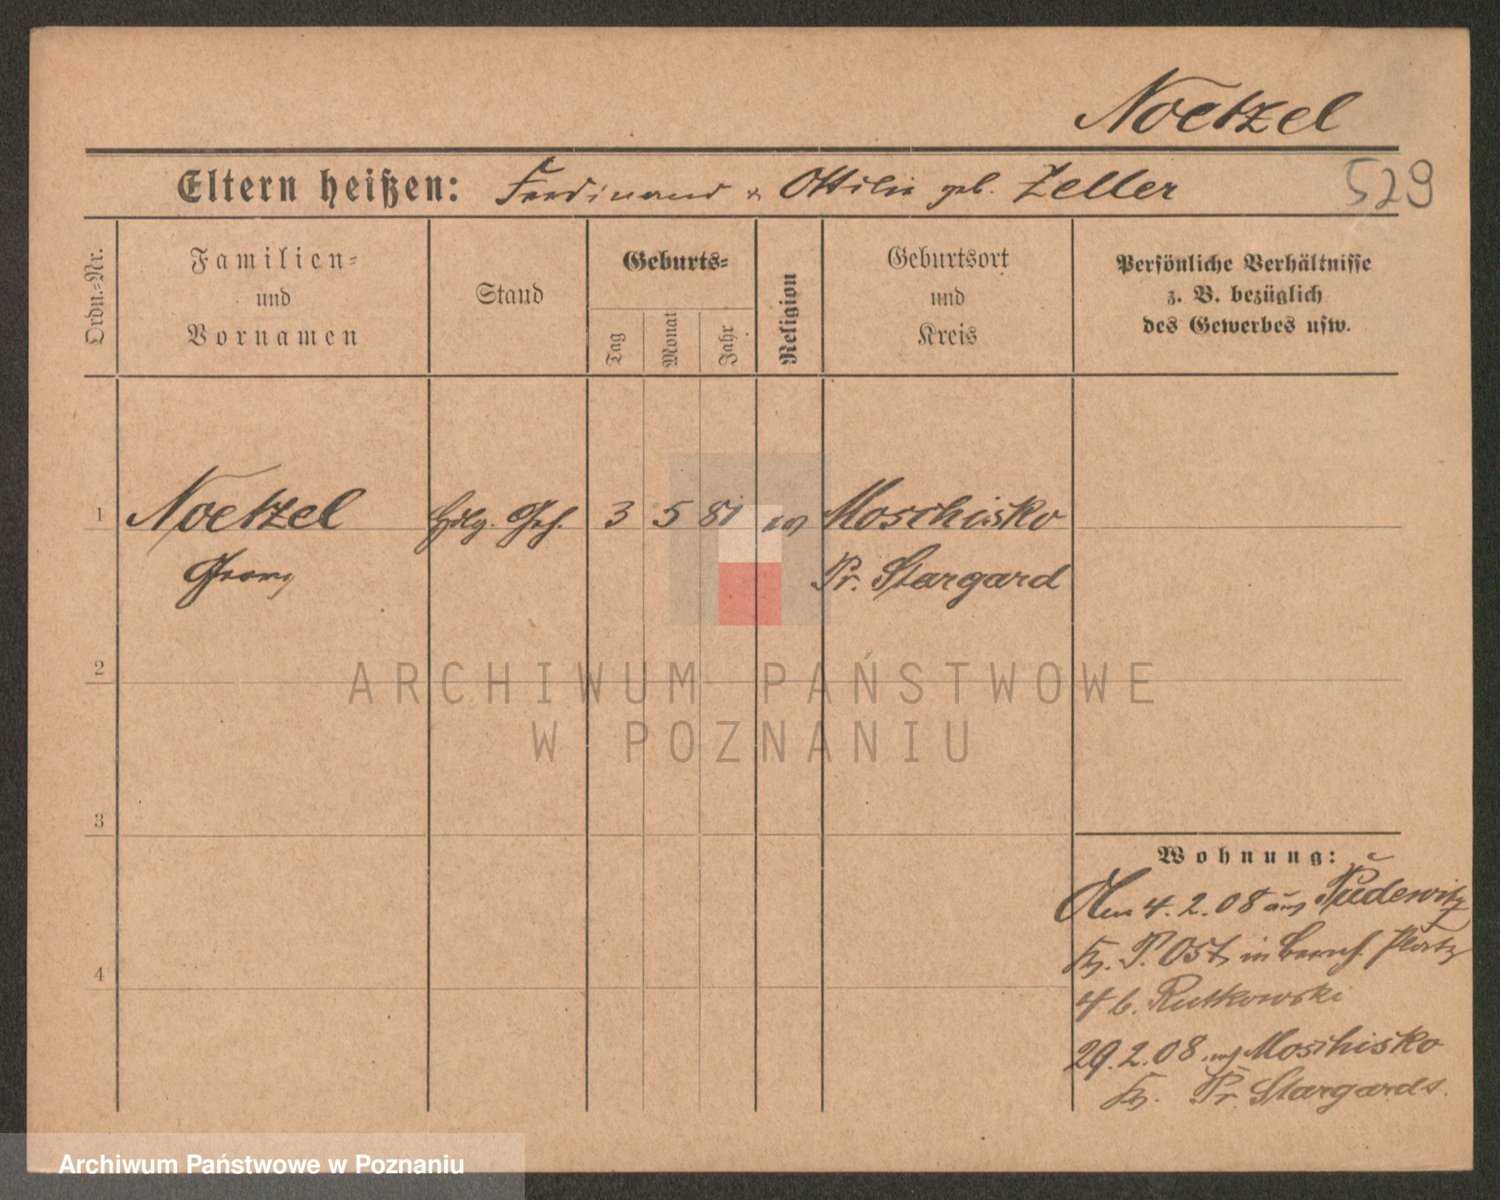 Noetzel
Eltern heißen: Ferdinand & Ottilie geb. Zeller
529
Ordn.-Nr.
Familien-
und
Vornamen
Stand
Geburts-
Tag
Monat
Jahr
Religion
Geburtsort
und
Kreis
Persönliche Verhältnisse
z. B. bezüglich
des Gewerbes usw.
1 Noetzel Hdlg. Geh. 3 5 81 ev Moschisko
Georg Pr. Stargard
2
ARCHIWUM PAŃSTWOWE
W POZNANIU
3
Wohnung:
Am 4. 2. 08 aus Pudewitz
Kr. P. Ost, in Platz
4 b. Rutkowski
29. 2. 08 Moschisko
Kr. Pr. Stargard
4
Archiwum Państwowe w Poznaniu